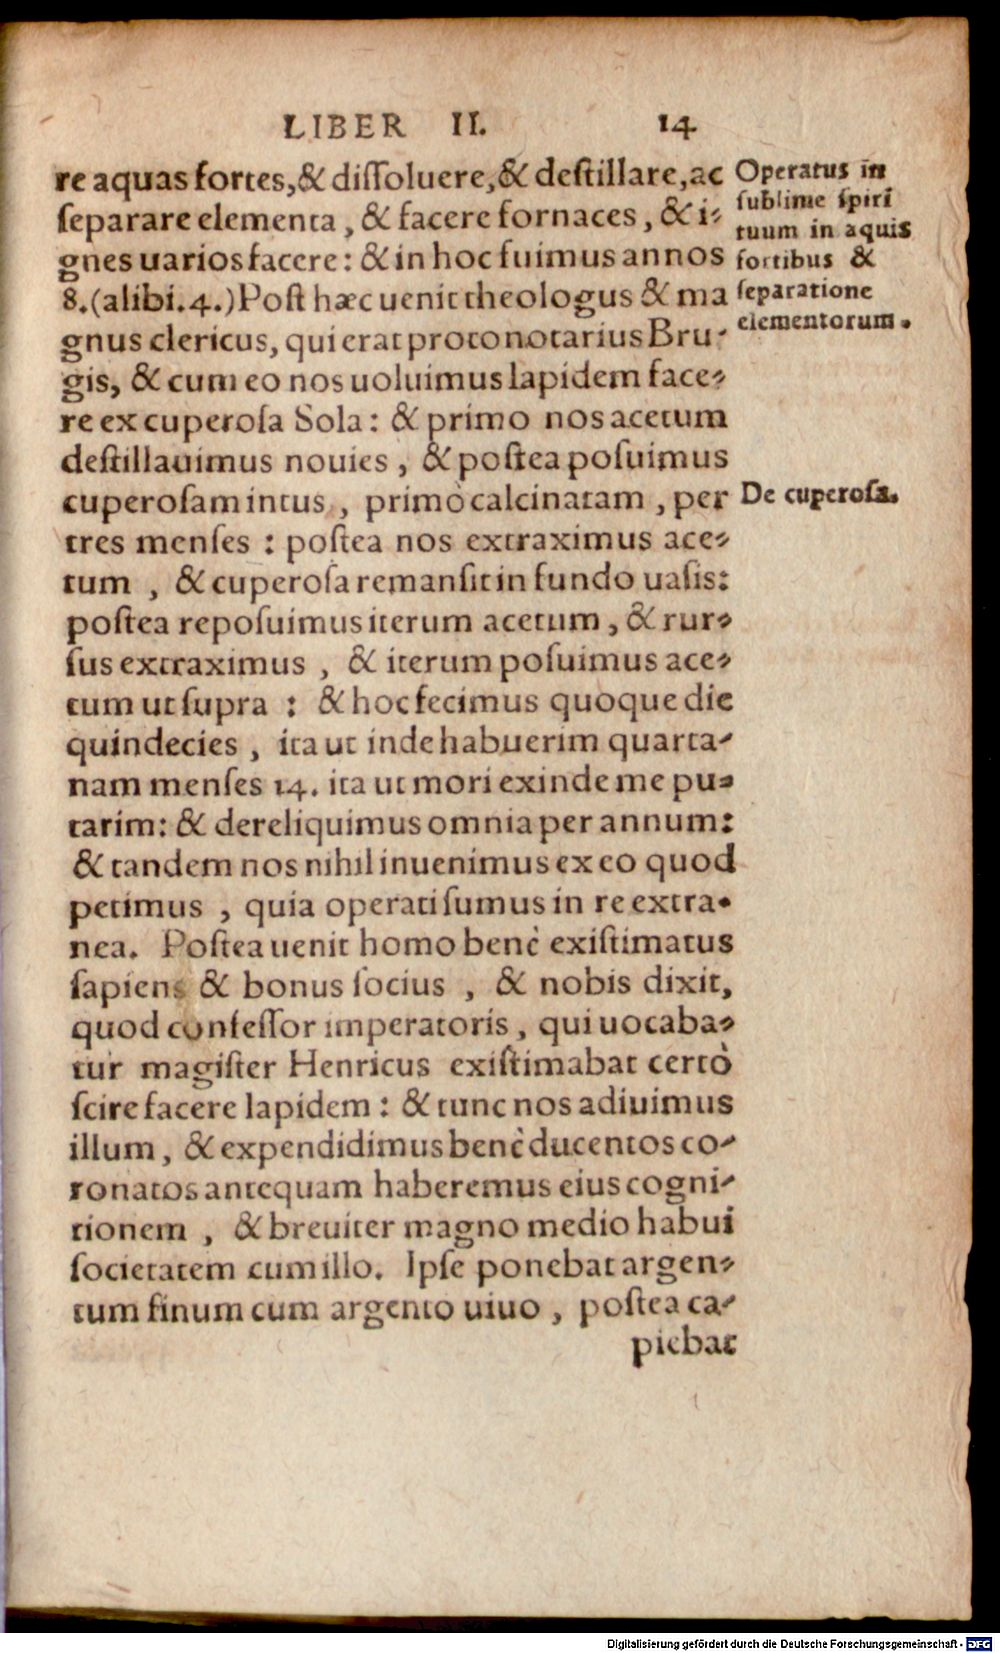 LIBER II. 14
re aquas fortes,& dissoluere,& destillare,ac
separare elementa, & facere fornaces, & i-
gnes uarios facere: & in hoc fuimus annos
8.(alibi.4.)Post hæc uenit theologus & ma
gnus clericus, qui erat protonotarius Bru-
gis, & cum eo nos uoluimus lapidem face-
re ex cuperosa Sola: & primo nos acetum
destillauimus nouies, & postea posuimus
cuperosam intus, primò calcinatam, per
tres menses: postea nos extraximus ace-
tum, & cuperosa remansit in fundo uasis:
postea reposuimus iterum acetum, & rur-
sus extraximus, & iterum posuimus ace-
tum ut supra: & hoc fecimus quoque die
quindecies, ita ut inde habuerim quarta-
nam menses 14. ita ut mori exinde me pu-
tarim: & dereliquimus omnia per annum:
& tandem nos nihil inuenimus ex eo quod
petimus, quia operati sumus in re extra-
nea. Postea uenit homo benè existimatus
sapiens & bonus socius, & nobis dixit,
quod confessor imperatoris, qui uocaba-
tur magister Henricus existimabat certò
scire facere lapidem: & tunc nos adiuimus
illum, & expendidimus benè ducentos co-
ronatos antequam haberemus eius cogni-
tionem, & breuiter magno medio habui
societatem cum illo. Ipse ponebat argen-
tum finum cum argento uiuo, postea ca-
piebat
Operatus in
sublime spiri
tuum in aquis
fortibus &
separatione
elementorum.
De cuperosa.
Digitalisierung gefördert durch die Deutsche Forschungsgemeinschaft - DFG